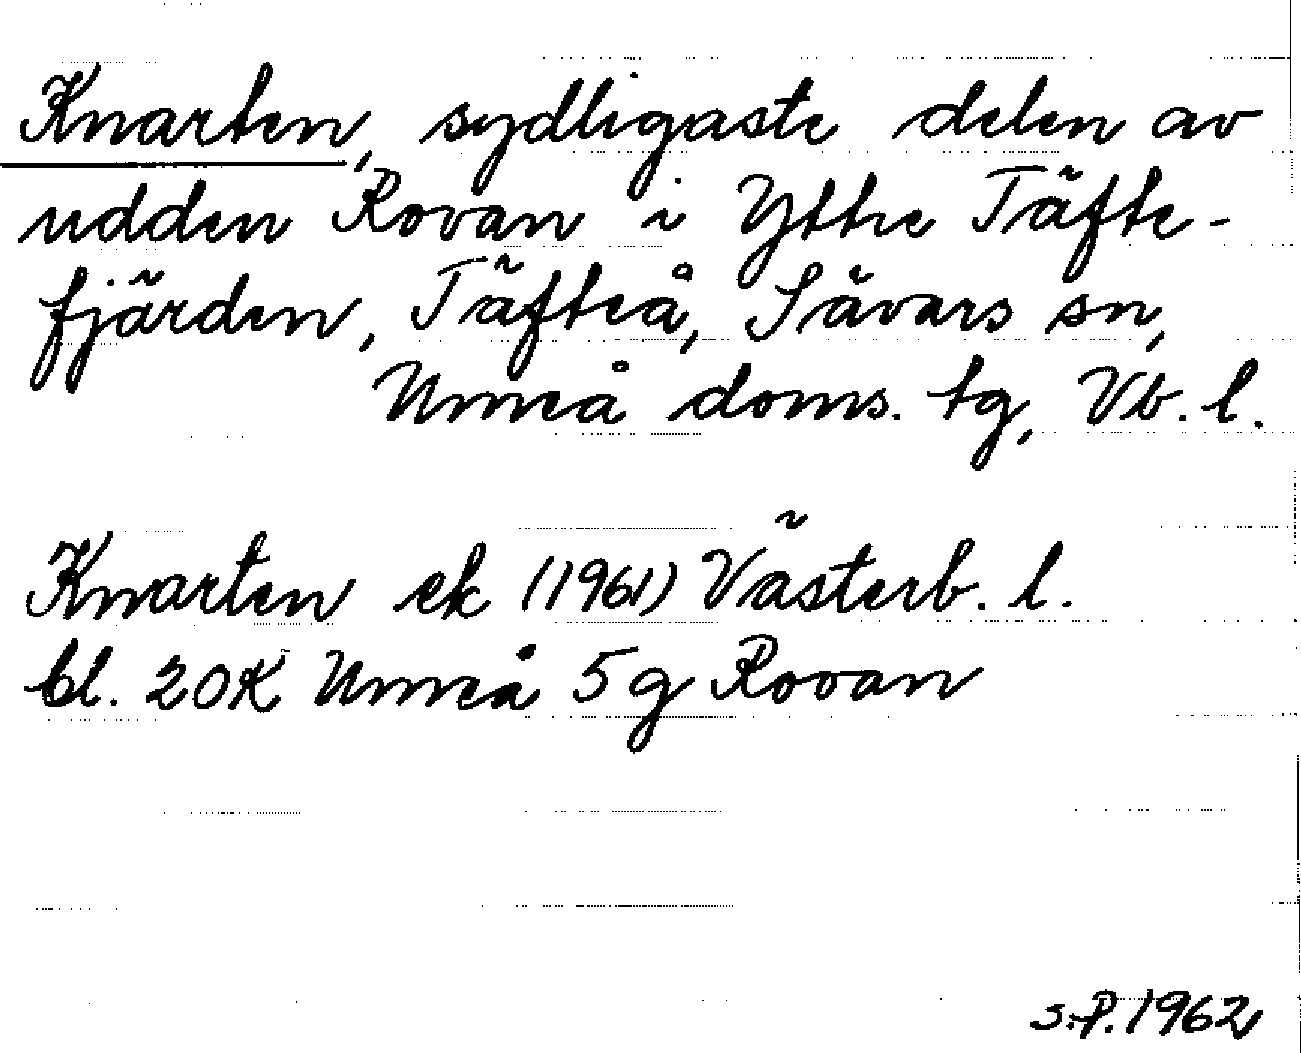 Knarten, sydligaste delen av
udden Rovan i Yttre Täfte-
fjärden, Täfteå, Sävars sn,
Umeå doms. tg, Vb. l.
Knarten ek (1961) Västerb. l.
bl. 20K Umeå 5g Rovan
S.P. 1962